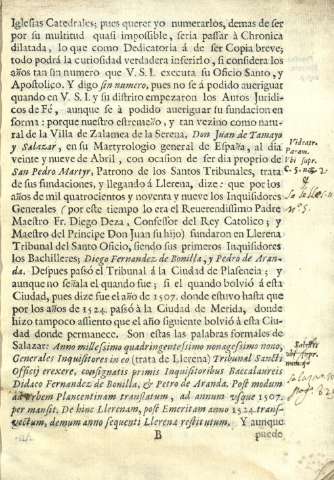 Iglesias Catedrales; pues querer yo numerarlos, demas de ser
por su multitud quasi impossible, seria passàr à Chronica
dilatada, lo que como Dedicatoria à de ser Copia breve;
todo podrá la curiosidad verdadera inferirlo, si considera los
años tan sin numero que V. S. I. executa su Oficio Santo, y
Apostolico. Y digo sin numero, pues no se á podido averiguar
quando en V. S. I. y su distrito empezaron los Autos Juridi-
cos de Fé, aunque se à podido averiguar su fundacion en
forma: porque nuestro estremeño, y tan vezino como natu-
ral de la Villa de Zalamea de la Serena, Don Juan de Tamayo
y Salazar, en su Martyrologio general de España, al dia
veinte y nueve de Abril, con ocasion de ser dia proprio de
San Pedro Martyr, Patrono de los Santos Tribunales, trata
de sus fundaciones, y llegando á Llerena, dize: que por los
años de mil quatrocientos y noventa y nueve los Inquisidores
Generales (por este tiempo lo era el Reuerendissimo Padre
Maestro Fr. Diego Deza, Confessor del Rey Catolico; y
Maestro del Principe Don Juan su hijo) fundaron en Llerena
Tribunal del Santo Oficio, siendo sus primeros Inquisidores
los Bachilleres; Diego Fernandez de Bonilla, y Pedro de Aran-
da. Despues passó el Tribunal á la Ciudad de Plasencia; y
aunque no señala el quando fue; si el quando bolvió á esta
Ciudad, pues dize fue el año de 1507. donde estuvo hasta que
por los años de 1524. passó à la Ciudad de Merida, donde
hizo tampoco assiento que el año siguiente bolvió á esta Ciu-
dad donde permanece. Son estas las palabras formales de
Salazar: Anno millesimo quadringentessimo nonagesimo nono,
Generales Inquisitores in eo (trata de Llerena) Tribunal Sancti
Officij erexere, consignatis primis Inquisitoribus Baccalaureis
Didaco Fernandez de Bonilla, & Petro de Aranda. Post modum
ad vrbem Plancentinam translatum, ad annum vsque 1507.
per mansit. De hinc Llerenam, post Emeritam anno 1524. trans-
vectum, demum anno sequenti Llerena restitutum. Y aunque
B
puedo